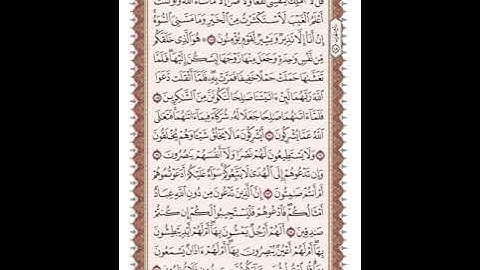 قُل لَّآ أَمْلِكُ لِنَفْسِى نَفْعًا وَلَا ضَرًّا إِلَّا مَا شَآءَ ٱللَّهُ وَلَوْ كُنتُ
أَعْلَمُ ٱلْغَيْبَ لَٱسْتَكْثَرْتُ مِنَ ٱلْخَيْرِ وَمَا مَسَّنِىَ ٱلسُّوٓءُ
إِنْ أَنَا۠ إِلَّا نَذِيرٌ وَبَشِيرٌ لِّقَوْمٍ يُؤْمِنُونَ ۞ هُوَ ٱلَّذِى خَلَقَكُم
مِّن نَّفْسٍ وَٰحِدَةٍ وَجَعَلَ مِنْهَا زَوْجَهَا لِيَسْكُنَ إِلَيْهَا فَلَمَّا
تَغَشَّىٰهَا حَمَلَتْ حَمْلًا خَفِيفًا فَمَرَّتْ بِهِۦ فَلَمَّآ أَثْقَلَت دَّعَوَا
ٱللَّهَ رَبَّهُمَا لَئِنْ ءَاتَيْتَنَا صَٰلِحًا لَّنَكُونَنَّ مِنَ ٱلشَّٰكِرِينَ
فَلَمَّآ ءَاتَىٰهُمَا صَٰلِحًا جَعَلَا لَهُۥ شُرَكَآءَ فِيمَآ ءَاتَىٰهُمَا فَتَعَٰلَى
ٱللَّهُ عَمَّا يُشْرِكُونَ أَيُشْرِكُونَ مَا لَا يَخْلُقُ شَيْـًٔا وَهُمْ يُخْلَقُونَ
وَلَا يَسْتَطِيعُونَ لَهُمْ نَصْرًا وَلَآ أَنفُسَهُمْ يَنصُرُونَ
وَإِن تَدْعُوهُمْ إِلَى ٱلْهُدَىٰ لَا يَتَّبِعُوكُمْ سَوَآءٌ عَلَيْكُمْ أَدَعَوْتُمُوهُمْ
أَمْ أَنتُمْ صَٰمِتُونَ إِنَّ ٱلَّذِينَ تَدْعُونَ مِن دُونِ ٱللَّهِ عِبَادٌ
أَمْثَالُكُمْ فَٱدْعُوهُمْ فَلْيَسْتَجِيبُوا۟ لَكُمْ إِن كُنتُمْ
صَٰدِقِينَ أَلَهُمْ أَرْجُلٌ يَمْشُونَ بِهَآ أَمْ لَهُمْ أَيْدٍ يَبْطِشُونَ
بِهَآ أَمْ لَهُمْ أَعْيُنٌ يُبْصِرُونَ بِهَآ أَمْ لَهُمْ ءَاذَانٌ يَسْمَعُونَ